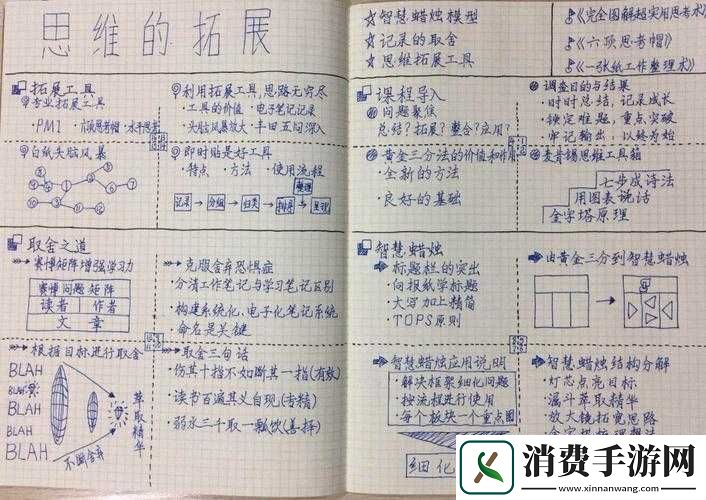 思维的拓展
拓展工具
专业拓展工具
·PMI ·六顶思考帽·水平思考
白纸头脑风暴
利用拓展工具,思路无穷尽
·工具的价值 ·电子笔记记录
·头脑风暴放大·丰田五问深入
即时贴是好工具
·特点 ·方法 ·使用流程
整理
记录→分组→归类→排序→呈现
取舍之道
赛慢矩阵增强学习力
赛慢问题矩阵
读者 作者
文 章
克服舍弃恐惧症
·分清工作笔记与学习笔记区别
·构建系统化,电子化笔记系统
·命名是关键
根据目标进行取舍
BLAH
BLAH
BLAH
BLAH
BLAH
不断舍弃
萃取精华
取舍三句话
·伤其十指不如断其一指(有效)
·读书百遍其义自现(专精)
·弱水三千取一瓢饮(善择)
☆智慧蜡烛模型
☆记录的取舍
☆思维拓展工具
《完全图解超实用思考术》
《六顶思考帽》
《一张纸工作整理术》
课程导入
问题聚焦
总结?拓展?整合?应用?
黄金三分法的价值和作用
·全新的方法
·良好的基础
调查目的与结果
·时时总结,记录成长
·搞定难题,重点突破
·牢记输出,以终为始
麦肯锡思维工具箱
七步成诗法
用图表说话
金字塔原理
智慧蜡烛
标题栏的突出
·向报纸学标题
·大字加上精简
·TOPS原则
由黄金三分到智慧蜡烛
智慧蜡烛应用说明
·解决框架细化问题
·按流程进行使用
·每个板块一个重点图
细化
智慧蜡烛结构分解
·灯芯点亮目标
·漏斗萃取精华
·放大镜拓宽思路
消费手游网
www.xinnanwang.com